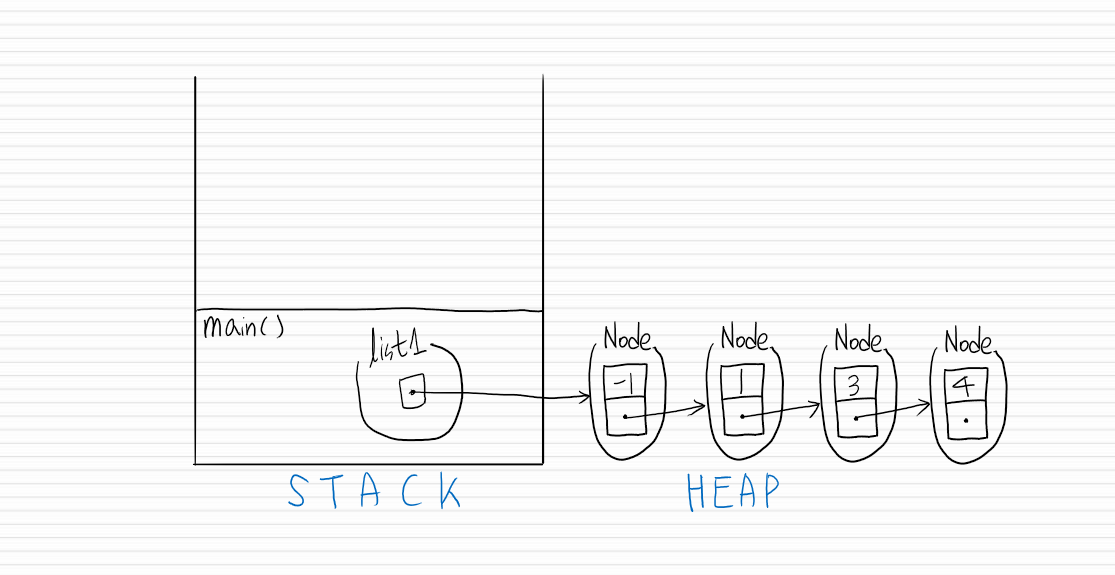 main()
list1
Node
Node
Node
Node
-1
1
3
4
STACK
HEAP